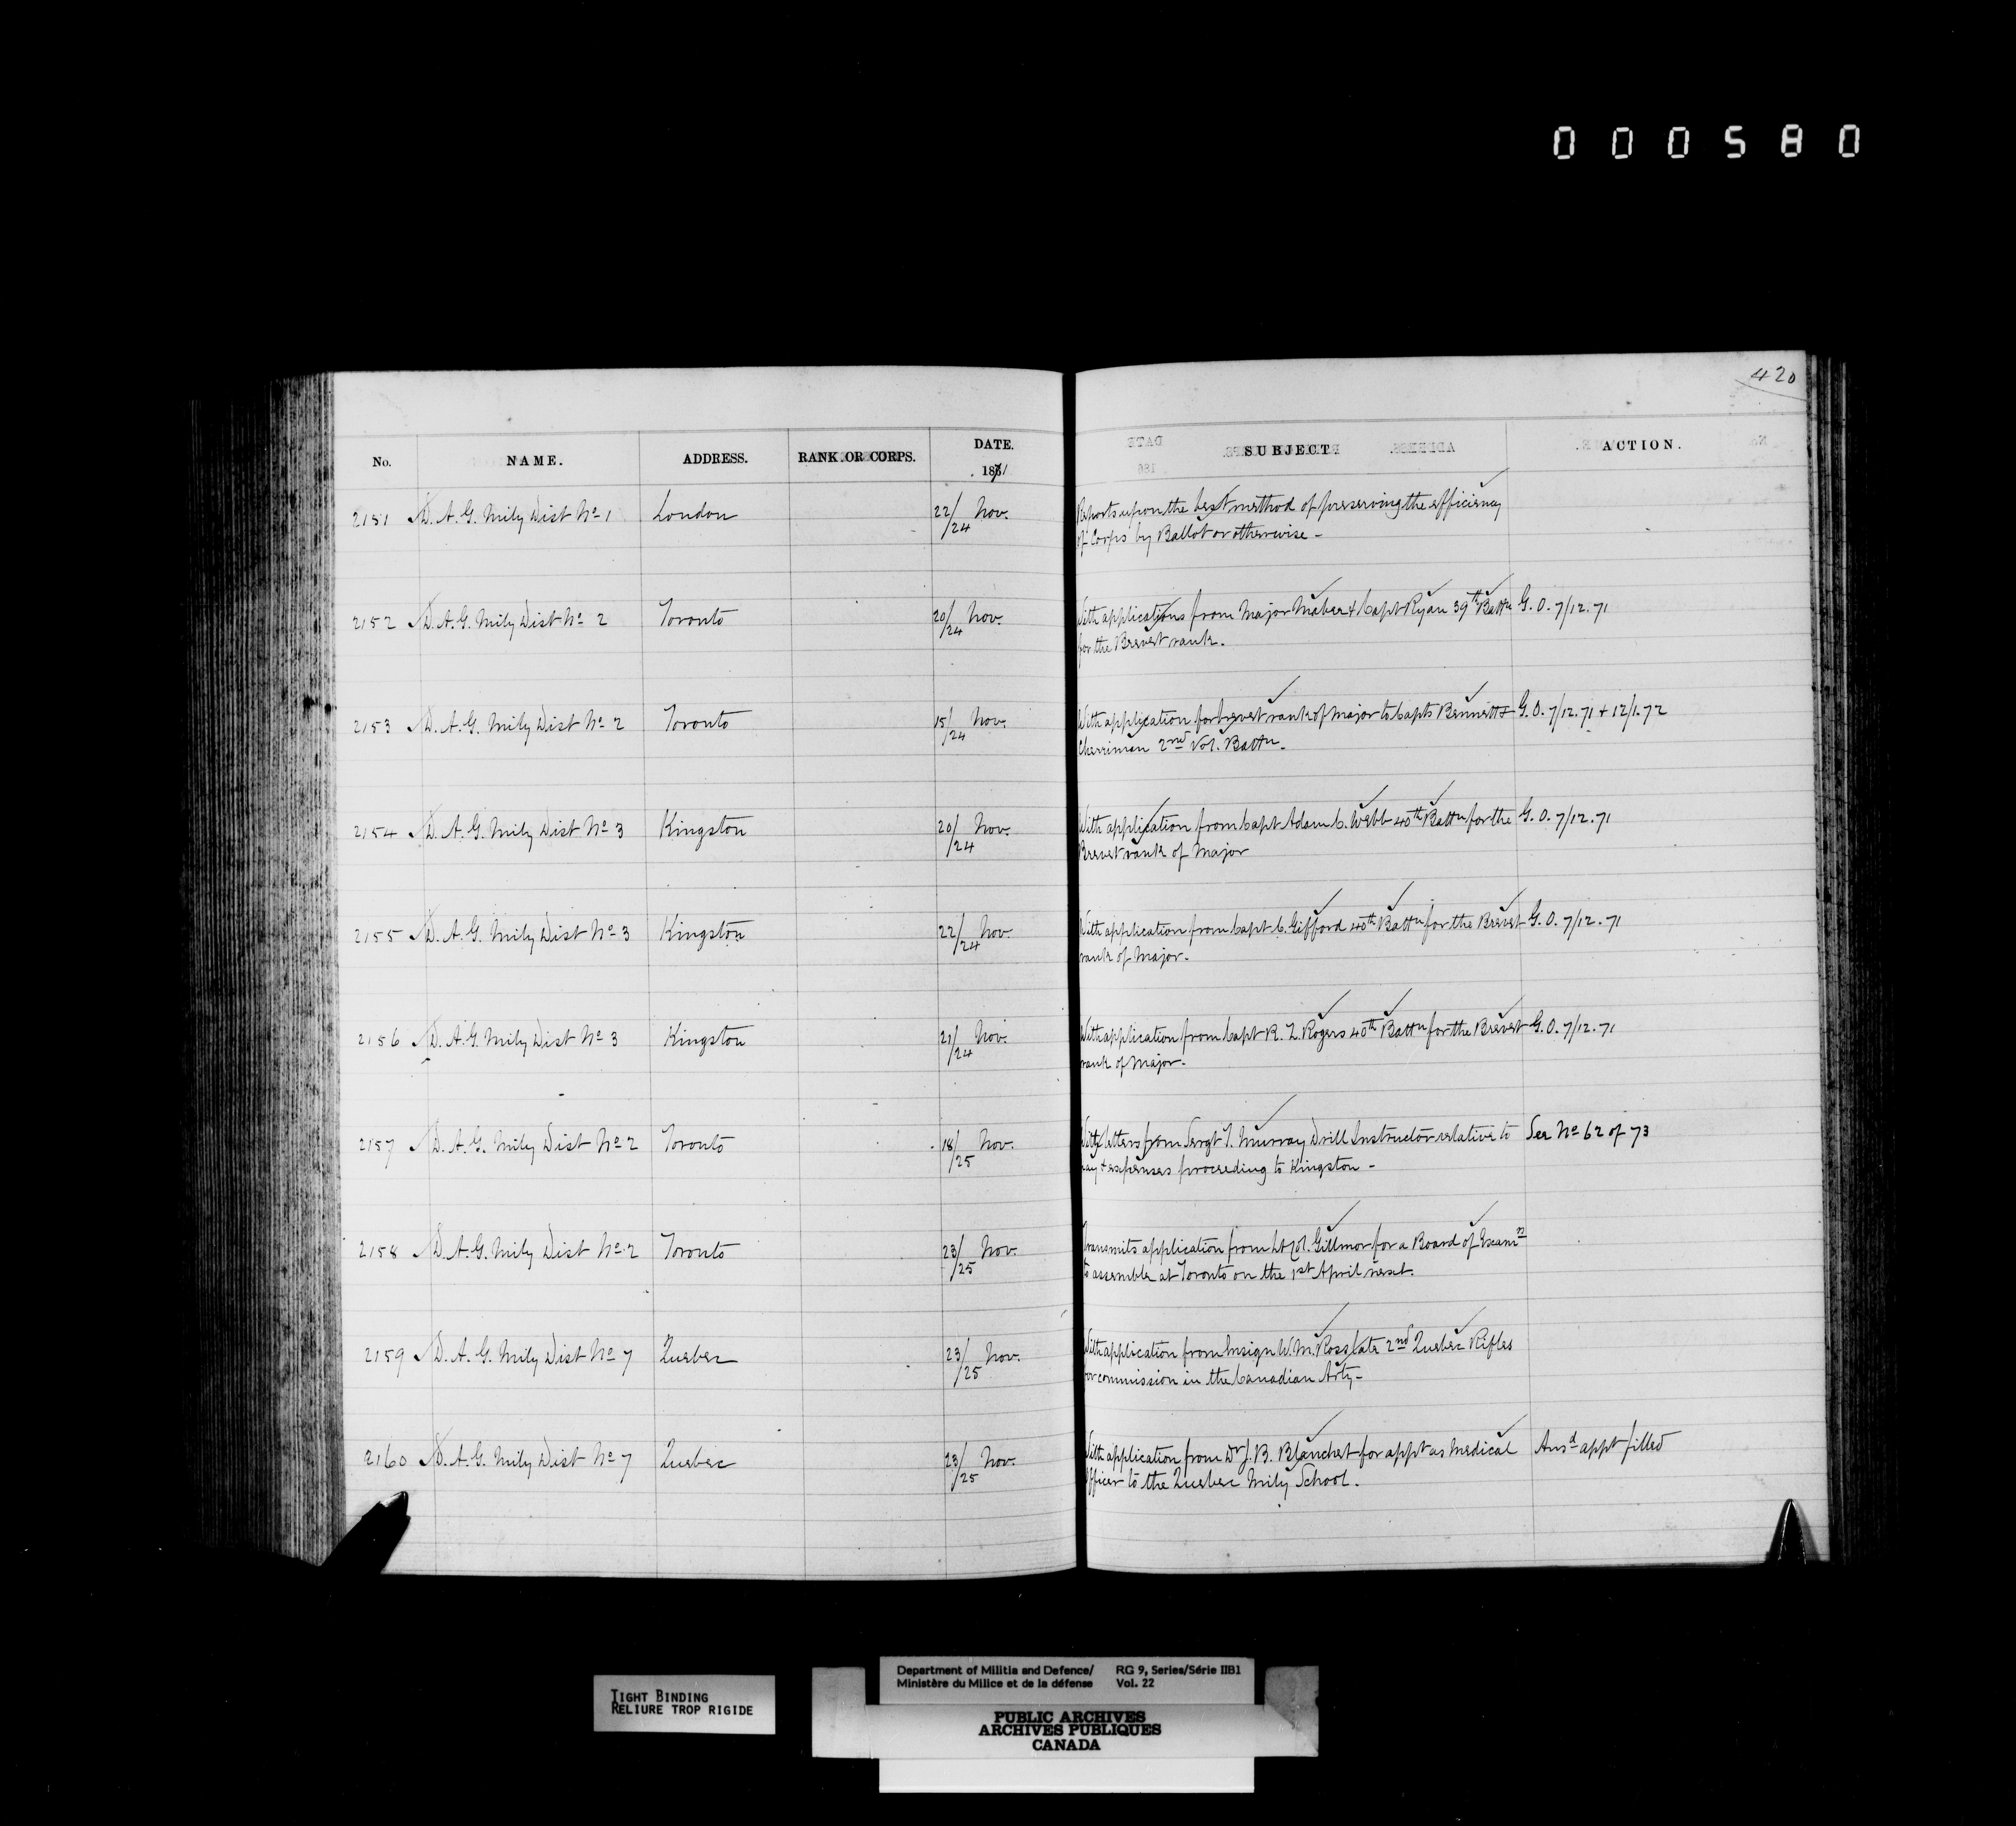 000580
420
No. NAME. ADDRESS. RANK OR CORPS. DATE. 1871 SUBJECT. ACTION.
2151 D. A. G. Mily Dist No 1 London 22/24 Nov. Reports upon the best method of preserving the efficiency
of Corps by Ballot or otherwise -
2152 D. A. G. Mily Dist No 2 Toronto 20/24 Nov. With applications from Major & Capt Ryan 39th Battn G. O. 7/12.71
for the Brevet rank.
2153 D. A. G. Mily Dist No 2 Toronto 15/24 Nov. With application for brevet rank of Major to Capts Bennett & G. O. 7/12.71 + 12/1.72
Cherriman 2nd Vol. Battn.
2154 D. A. G. Mily Dist No 3 Kingston 20/24 Nov. With application from Capt Adam C. Webb 40th Battn for the G. O. 7/12.71
Brevet rank of Major
2155 D. A. G. Mily Dist No 3 Kingston 22/24 Nov. With application from Capt C. Gifford 40th Battn for the Brevet G. O. 7/12.71
rank of Major.
2156 D. A. G. Mily Dist No 3 Kingston 21/24 Nov. With application from Capt R. Z. Rogers 40th Battn for the Brevet G. O. 7/12.71
rank of Major.
2157 D. A. G. Mily Dist No 2 Toronto 18/25 Nov. With letters from Sergt T. Murray Drill Instructor relative to See No 62 of 73
pay & expenses proceeding to Kingston -
2158 D. A. G. Mily Dist No 2 Toronto 23/25 Nov. Transmits application from Lt Col. Gillmor for a Board of Examn
to assemble at Toronto on the 1st April next.
2159 D. A. G. Mily Dist No 7 Quebec 23/25 Nov. With application from Ensign W. M. Ross late 2nd Quebec Rifles
for commission in the Canadian Arty -
2160 D. A. G. Mily Dist No 7 Quebec 23/25 Nov. With application from Dr J. B. Blanchet for appt as Medical Ansd appt filled
Officer to the Quebec Mily School.
TIGHT BINDING
RELIURE TROP RIGIDE
Department of Militia and Defence/ RG 9, Series/Série IIB1
Ministère du Milice et de la défense Vol. 22
PUBLIC ARCHIVES
ARCHIVES PUBLIQUES
CANADA